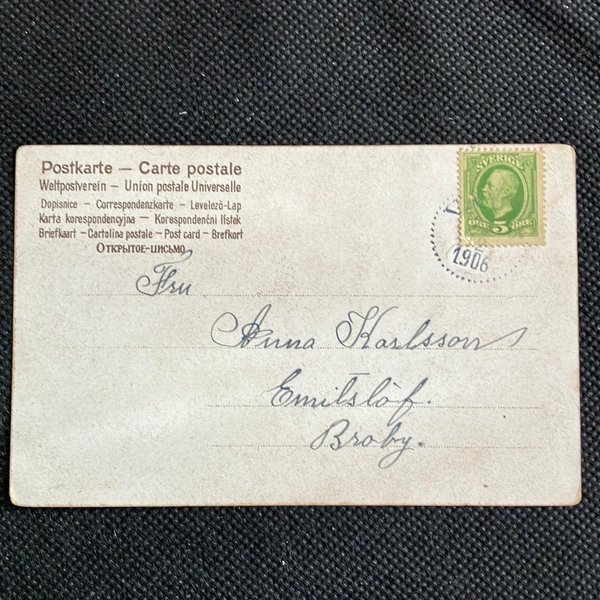 Postkarte — Carte postale
Weltpostverein – Union postale Universelle
Dopisnice - Correspondenzkarte - Levelező-Lap
Karta korespondencyjna – Korespondenční lístek
Briefkaart – Cartolina postale – Post card – Brefkort
Открытое-письмо
SVERIGE
5 ÖRE
1906
Fru
Anna Karlsson
Emitslöf.
Broby.